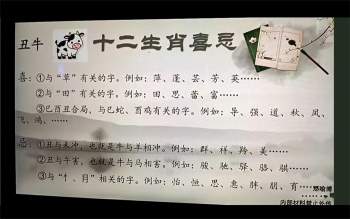 丑牛
十二生肖喜忌
喜：①与“草”有关的字。例如：萍、蓬、芸、芳、英……
②与“田”有关的字。例如：田、思、蕾、富……
③巳酉丑合局，与巳蛇、酉鸡有关的字。例如：导、强、道、秋、凤、
飞、鸿、……
忌：①丑与未冲，也就是牛与羊相冲。例如：群、祥、羚、美……
②丑与午害，也就是牛与马相害。例如：骏、驰、驿、骆、骐……
③与“忄、月”相关的字。例如：怡、恒、思、惠、胖、朋、育…
内部材料禁止外传